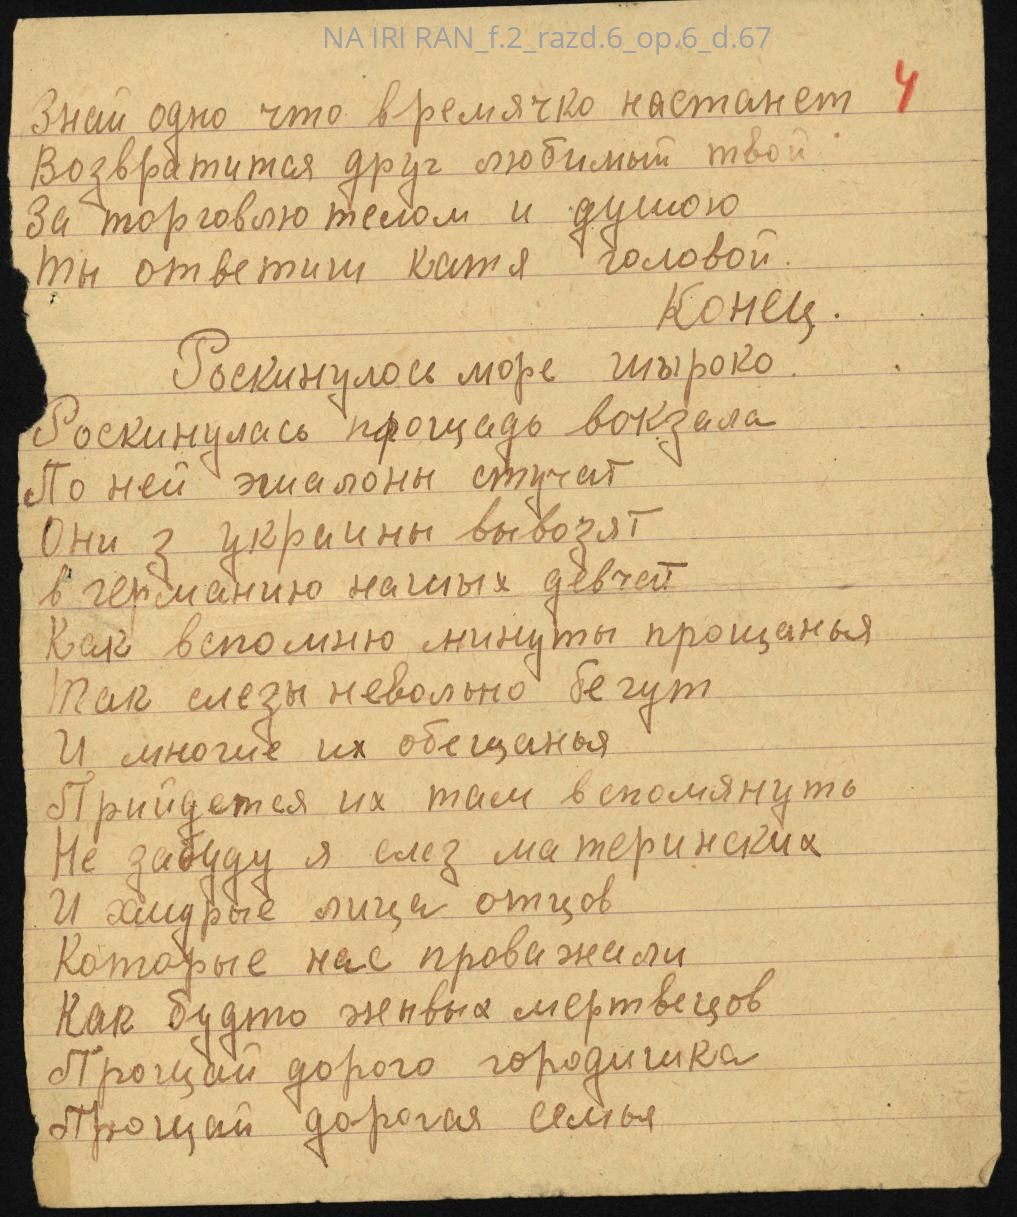 NA IRI RAN_f.2_razd.6_op.6_d.67
4
Знай одно что времячко настанет
Возвратится друг любимый твой
За торговлю телом и душою
Ты ответиш Катя головой.
Конец.
Роскинулось море шыроко.
Роскинулась площадь вокзала
По ней эшалоны стучат
Они з украины вывозят
в германию нашых девчат
Как вспомню минуты прощанья
Так слезы невольно бегут
И многие их обещанья
Прийдется их там вспомянуть
Не забуду я слез материнских
И хмурые лица отцов
Которые нас проважали
Как будто жывых мертвецов
Прощай дорого городишка
Прощай дорогая семья